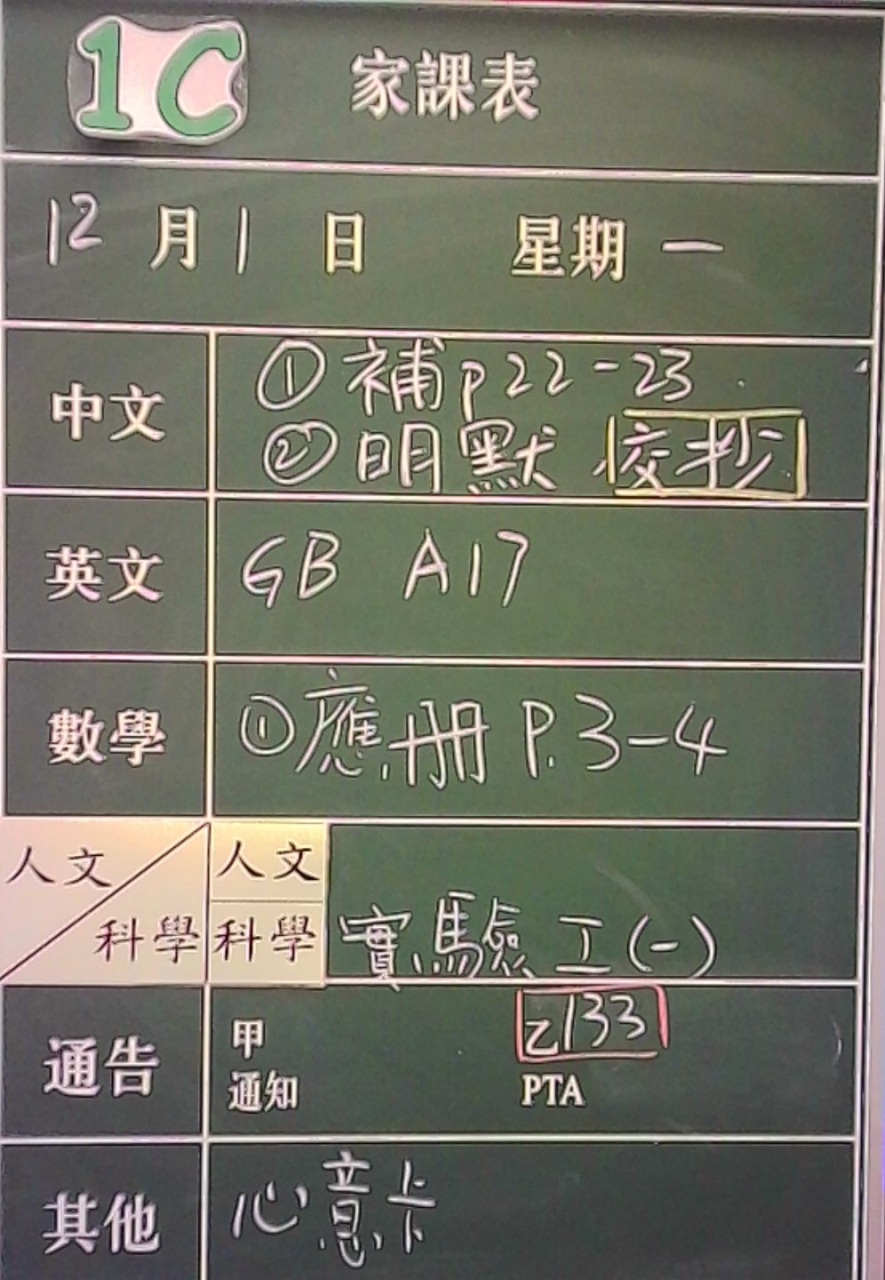 1C 家課表
12 月 1 日 星期 一
中文 ① 補 p 22-23
② 明默 交抄
英文 GB A17
數學 ① 應.册 P.3-4
人文 人文
科學 科學 實驗工(一)
甲 乙133
通告
通知 PTA
其他 心意卡